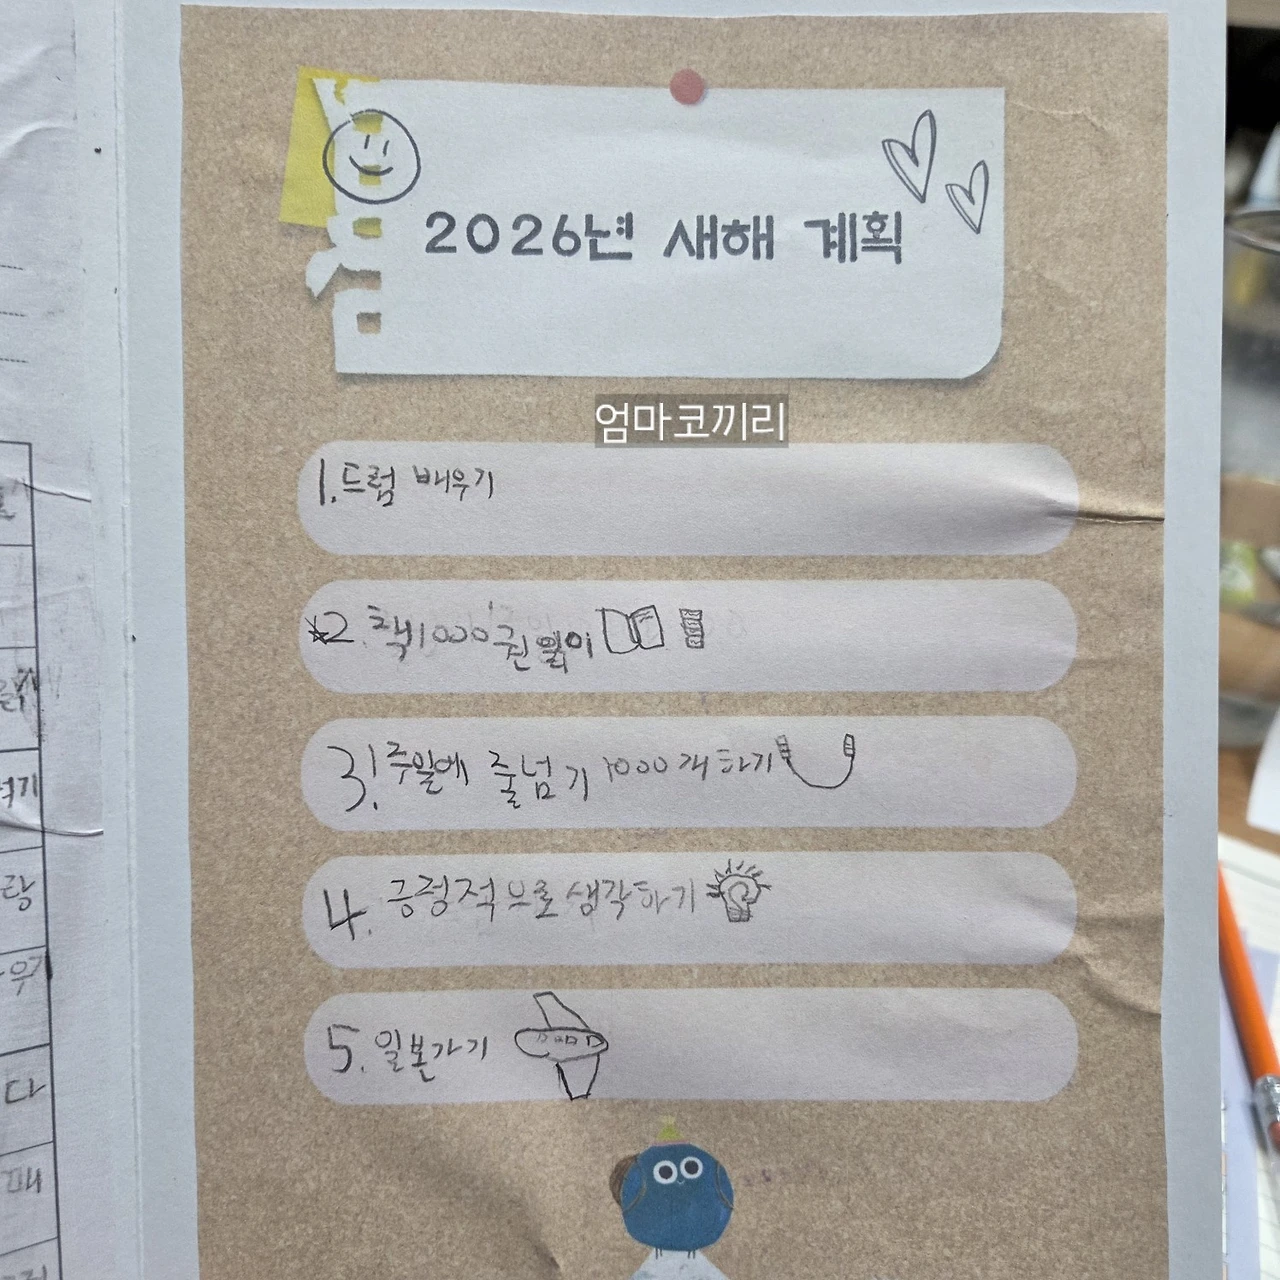 2026년 새해 계획
엄마코끼리
1. 드럼 배우기
2. 책 1000권 읽이
3. 주일에 줄넘기 1000개 하기
4. 긍정적으로 생각하기
5. 일본가기